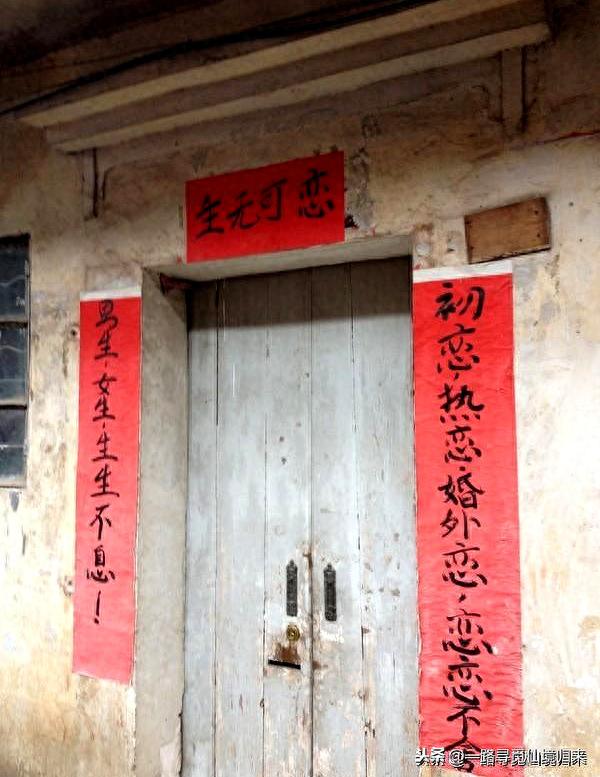 生无可恋
初恋，热恋，婚外恋，恋恋不舍
男生，女生，生生不息！
头条 @一路寻觅仙境归来